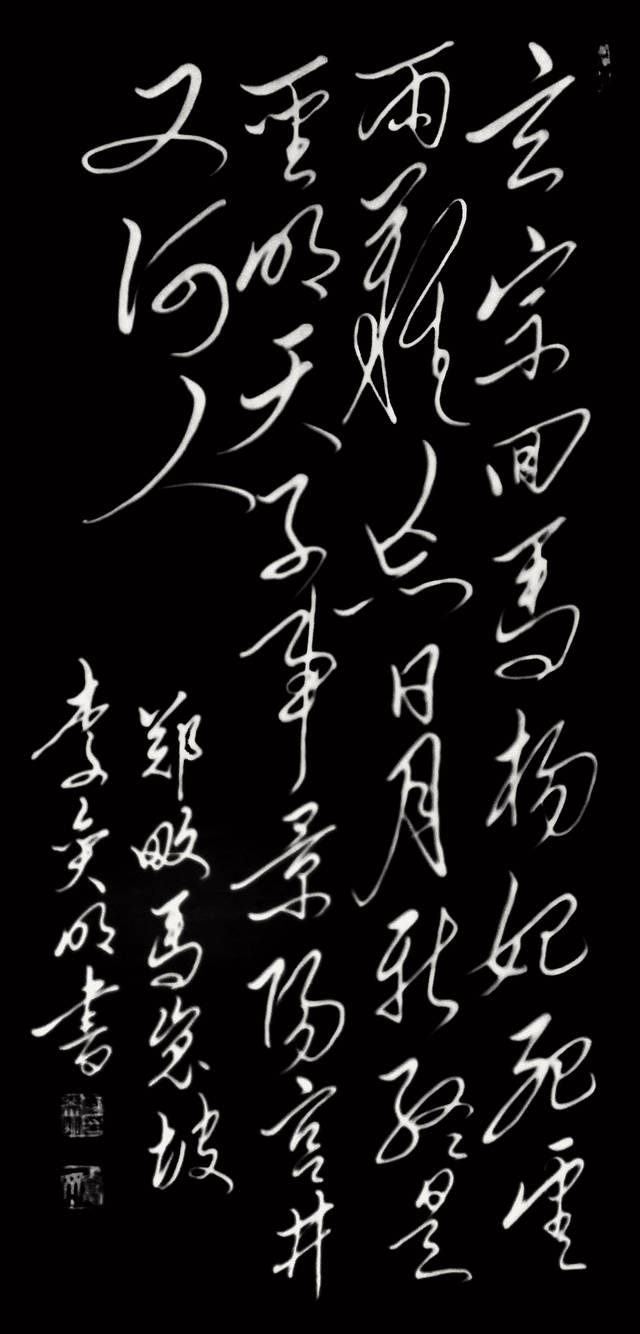 玄宗回馬楊妃死雲
雨難忘日月新終是
聖明天子事景陽宮井
又何人
郑畋馬嵬坡
李奐明書